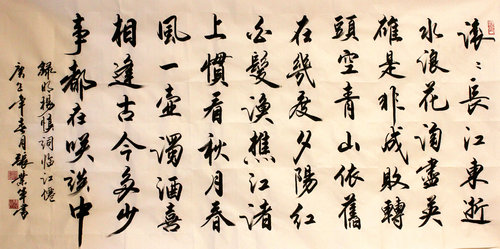 滚〻長江東逝
水浪花淘盡英
雄是非成敗轉
頭空青山依舊
在幾度夕陽紅
白髮漁樵江渚
上慣看秋月春
風一壺濁酒喜
相逢古今多少
事都在咲談中
錄明楊慎詞臨江僊